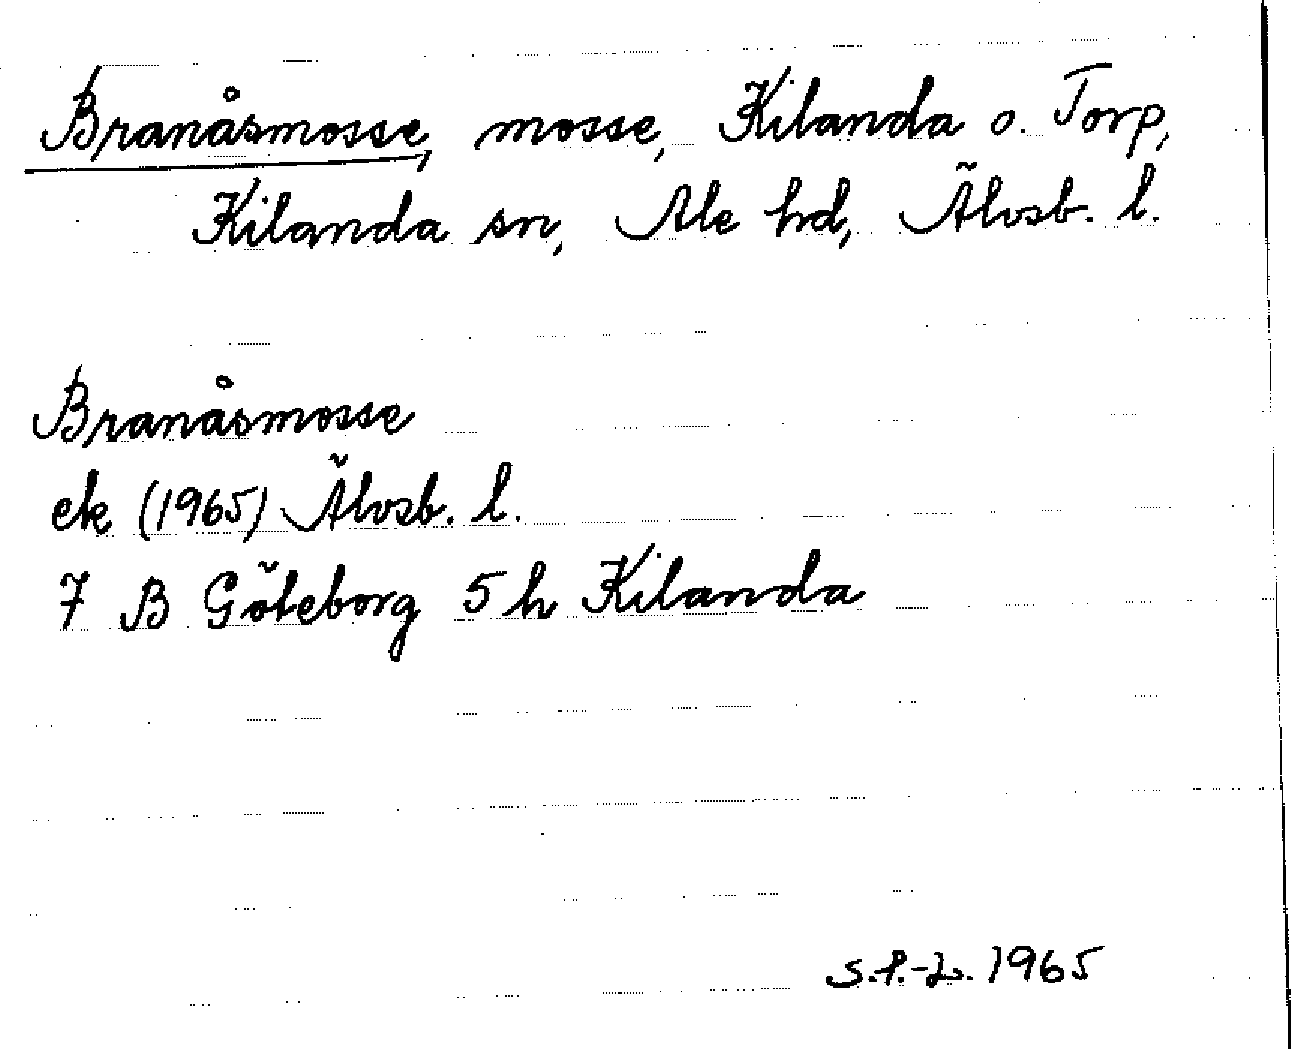 Branåsmosse, mosse, Kilanda o. Torp,
Kilanda sn, Ale hd, Älvsb. l.
Branåsmosse
ek (1965) Älvsb. l.
7 B Göteborg 5 h Kilanda
1965